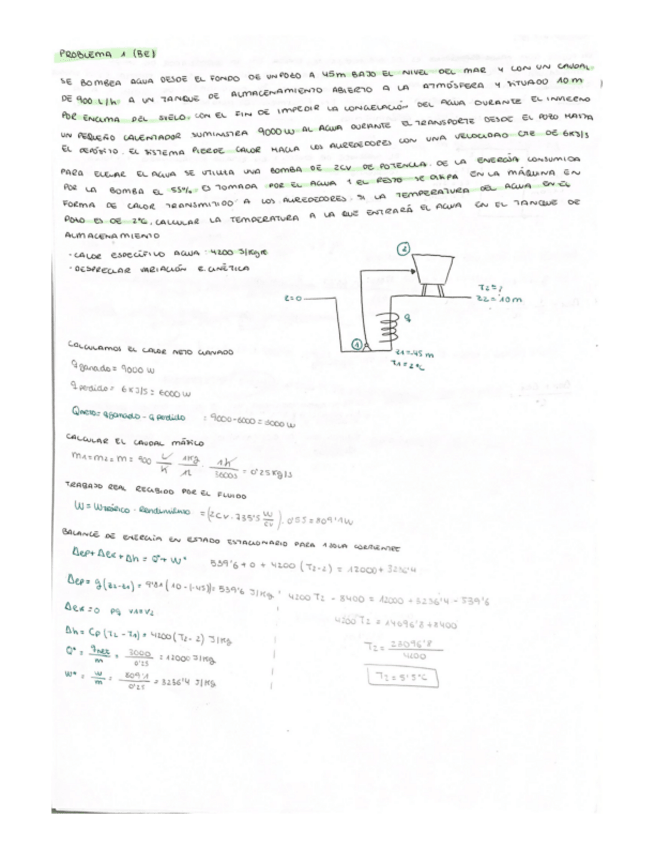 PROBLEMA 1 (BE)
SE BOMBEA AGUA DESDE EL FONDO DE UN POZO A 45m BAJO EL NIVEL DEL MAR Y CON UN CAUDAL
DE 900 L/h A UN TANQUE DE ALMACENAMIENTO ABIERTO A LA ATMÓSFERA Y SITUADO 10 m
POR ENCIMA DEL SUELO. CON EL FIN DE IMPEDIR LA CONGELACIÓN DEL AGUA DURANTE EL INVIERNO
UN PEQUEÑO CALENTADOR SUMINISTRA 9000 W AL AGUA DURANTE EL TRANSPORTE DESDE EL POZO HASTA
EL DEPÓSITO. EL SISTEMA PIERDE CALOR HACIA LOS ALREDEDORES CON UNA VELOCIDAD CTE DE 6KJ/S
PARA ELEVAR EL AGUA SE UTILIZA UNA BOMBA DE 2CV DE POTENCIA. DE LA ENERGÍA CONSUMIDA
POR LA BOMBA EL 55% ES TOMADA POR EL AGUA Y EL RESTO SE DISIPA EN LA MÁQUINA EN
FORMA DE CALOR TRANSMITIDO A LOS ALREDEDORES. SI LA TEMPERATURA DEL AGUA EN EL
POZO ES DE 2ºC, CALCULAR LA TEMPERATURA A LA QUE ENTRARÁ EL AGUA EN EL TANQUE DE
ALMACENAMIENTO
· CALOR ESPECÍFICO AGUA: 4200 J/KgK
· DESPRECIAR VARIACIÓN E CINÉTICA
2
T2=?
z2=10m
z=0
q
1
z1=-45 m
T1=2ºC
CALCULAMOS EL CALOR NETO GANADO
q ganado = 9000 W
q perdido = 6 KJ/S = 6000 W
Qneto = q ganado - q perdido = 9000 - 6000 = 3000 W
CALCULAR EL CAUDAL MÁSICO
m1 = m2 = m = 900 L/h · 1Kg/1L · 1h/3600s = 0'25 Kg/s
TRABAJO REAL RECIBIDO POR EL FLUIDO
W = Wteórico · Rendimiento = (2CV · 735'5 W/CV) · 0'55 = 809'1 W
BALANCE DE ENERGÍA EN ESTADO ESTACIONARIO PARA 1 SOLA CORRIENTE
Δep + Δec + Δh = Q* + W*
539'6 + 0 + 4200 (T2-2) = 12000 + 3236'4
Δep = g(z2-z1) = 9'81 (10-(-45)) = 539'6 J/Kg
4200 T2 - 8400 = 12000 + 3236'4 - 539'6
Δec = 0 pq v1=v2
4200 T2 = 14696'8 + 8400
Δh = Cp (T2-T1) = 4200 (T2-2) J/Kg
T2 = 23096'8/4200
Q* = qnet/m = 3000/0'25 = 12000 J/Kg
T2 = 5'5ºC
W* = W/m = 809'1/0'25 = 3236'4 J/Kg